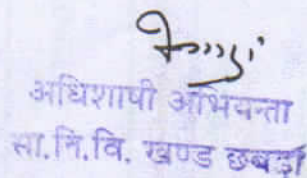 अधिशाषी अभियन्ता
सा.नि.वि. खण्ड छबड़ा